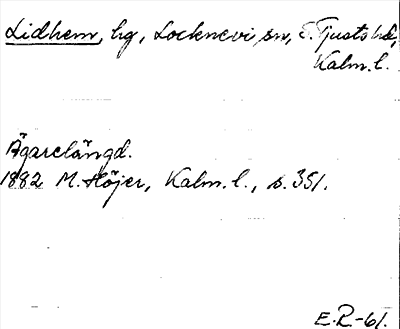 Lidhem, hg, Locknevi sn, S. Tjusts hd,
Kalm. l.
Ägarelängd.
1882 M. Höjer, Kalm. l., s. 351.
E.R-61.